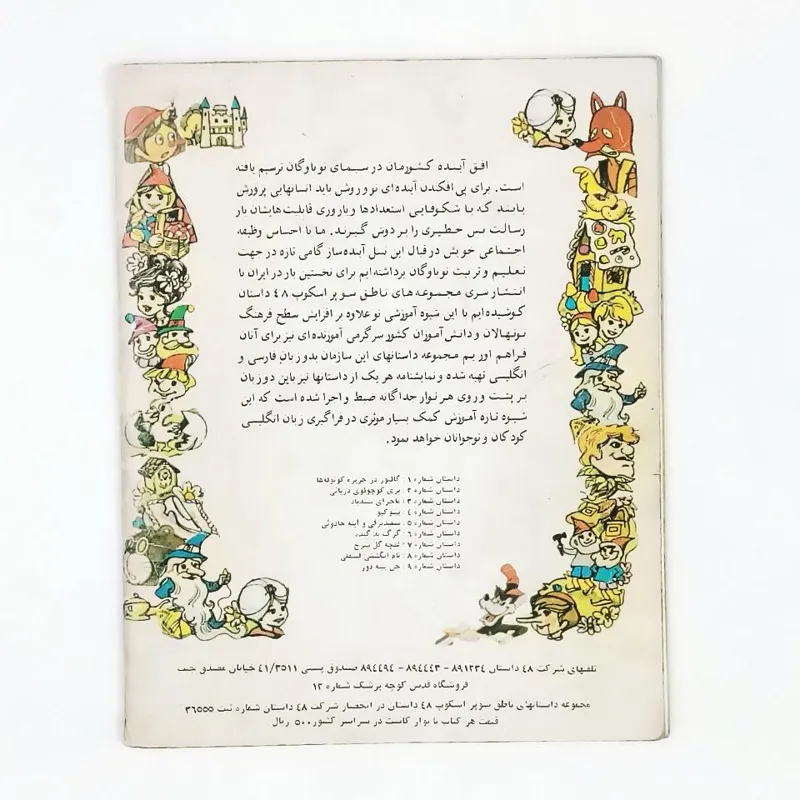 افق آینده کشورمان در سیمای نوباوگان ترسیم یافته
است. برای پی افکندن آینده‌ای نو و روشن باید انسانهایی پرورش
یابند که با شکوفایی استعدادها و باروری قابلیت‌هایشان بار
رسالت بس خطیری را بر دوش گیرند. ما با احساس وظیفه
اجتماعی خویش در قبال این نسل آینده‌ساز گامی تازه در جهت
تعلیم و تربیت نوباوگان برداشته‌ایم برای نخستین بار در ایران با
انتشار سری مجموعه‌های ناطق سوپر اسکوپ ۴۸ داستان
کوشیده‌ایم با این شیوه آموزشی نو علاوه بر افزایش سطح فرهنگ
نونهالان و دانش‌آموزان کشور سرگرمی آموزنده‌ای نیز برای آنان
فراهم آوریم مجموعه داستانهای این سازمان بدو زبان فارسی و
انگلیسی تهیه شده و نمایشنامه هر یک از داستانها نیز باین دو زبان
بر پشت و روی هر نوار جداگانه ضبط و اجرا شده است که این
شیوه تازه آموزش کمک بسیار موثری در فراگیری زبان انگلیسی
کودکان و نوجوانان خواهد نمود.
داستان شماره ۱ : گالیور در جزیره کوتوله‌ها
داستان شماره ۲ : پری کوچولوی دریائی
داستان شماره ۳ : ماجرای سندباد
داستان شماره ۴ : پینوکیو
داستان شماره ۵ : سفیدبرفی و آینه جادوئی
داستان شماره ۶ : گرگ بد گنده
داستان شماره ۷ : غنچه گل سرخ
داستان شماره ۸ : تام انگشتی فسقلی
داستان شماره ۹ : جن پینه دوز
تلفنهای شرکت ۴۸ داستان ۸۹۱۲۳۴ - ۸۹۴۴۴۳ - ۸۹۴۴۹۴ صندوق پستی ۴۱/۳۵۱۱ خیابان مصدق جنب
فروشگاه قدس کوچه پزشک شماره ۱۲
مجموعه داستانهای ناطق سوپر اسکوپ ۴۸ داستان در انحصار شرکت ۴۸ داستان شماره ثبت ۳۶۵۵۵
قیمت هر کتاب با نوار کاست در سراسر کشور ۵۰۰ ریال